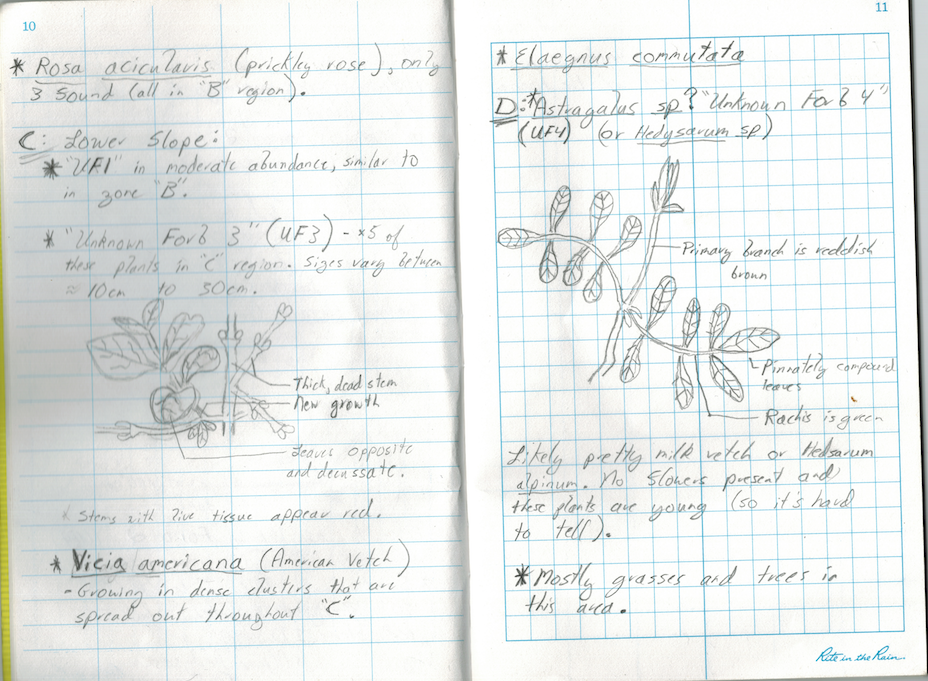 10
* Rosa acicularis (prickley rose), only
3 sound (all in "B" region).
C: Lower Slope:
* "UF1" in moderate abundance, similar to
in zone "B".
* "Unknown Forb 3" (UF3) - ×5 of
these plants in "C" region. Sizes vary between
≈ 10cm to 50cm.
Thick, dead stem
New growth
Leaves opposite
and decussate.
* Stems with live tissue appear red.
* Vicia americana (American Vetch)
- Growing in dense clusters that are
spread out throughout "C".
11
* Elaegnus commutata
D: * Astragalus sp? "Unknown Forb 4"
(UF4) (or Hedysarum sp)
Primary branch is reddish
brown
Pinnately compound
leaves
Rachis is green
Likely pretty milk vetch or Hedsarum
alpinum. No flowers present and
these plants are young (so it's hard
to tell).
* Mostly grasses and trees in
this area.
Rite in the Rain